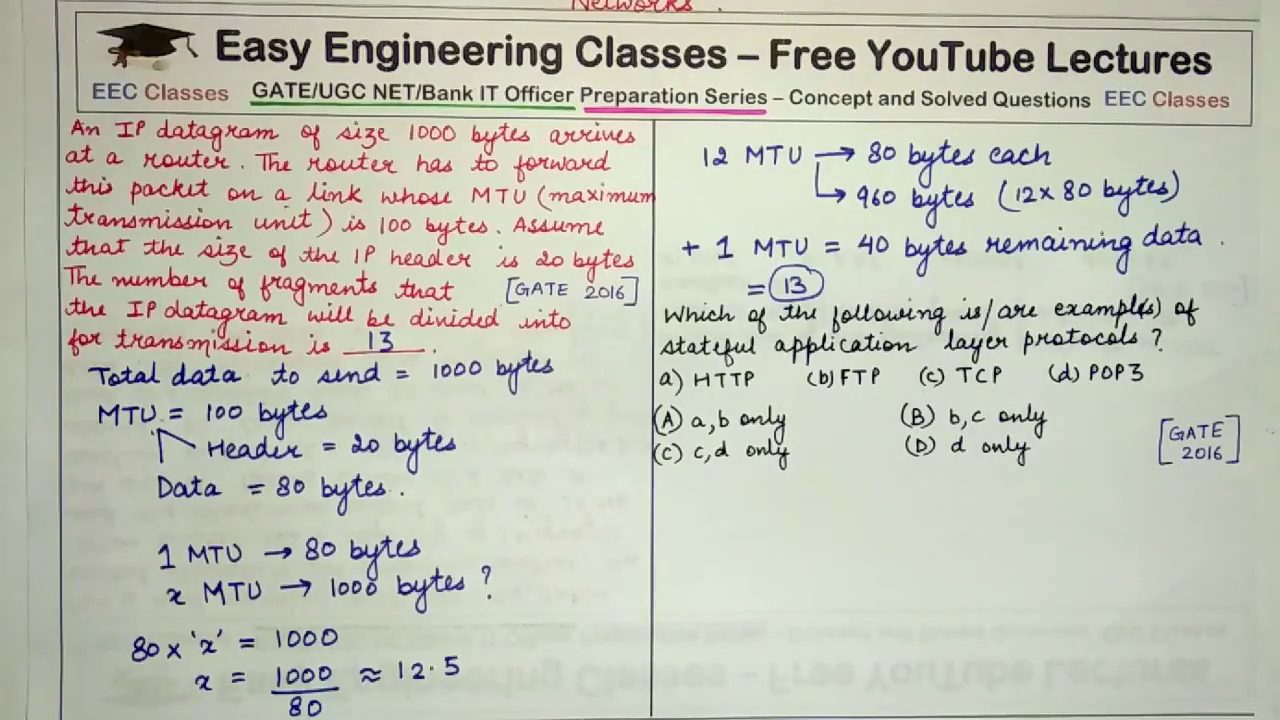 Networks.
Easy Engineering Classes – Free YouTube Lectures
EEC Classes GATE/UGC NET/Bank IT Officer Preparation Series – Concept and Solved Questions EEC Classes
An IP datagram of size 1000 bytes arrives
at a router. The router has to forward
this packet on a link whose MTU (maximum
transmission unit) is 100 bytes. Assume
that the size of the IP header is 20 bytes
The number of fragments that [GATE 2016]
the IP datagram will be divided into
for transmission is 13.
Total data to send = 1000 bytes
MTU = 100 bytes
Header = 20 bytes
Data = 80 bytes.
1 MTU → 80 bytes
x MTU → 1000 bytes ?
80 x 'x' = 1000
x = 1000 ≈ 12.5
80
12 MTU → 80 bytes each
↳ 960 bytes (12 x 80 bytes)
+ 1 MTU = 40 bytes remaining data.
= 13
Which of the following is/are example(s) of
stateful application layer protocols ?
a) HTTP (b) FTP (c) TCP (d) POP3
(A) a, b only (B) b, c only
(C) c, d only (D) d only
[GATE
2016]